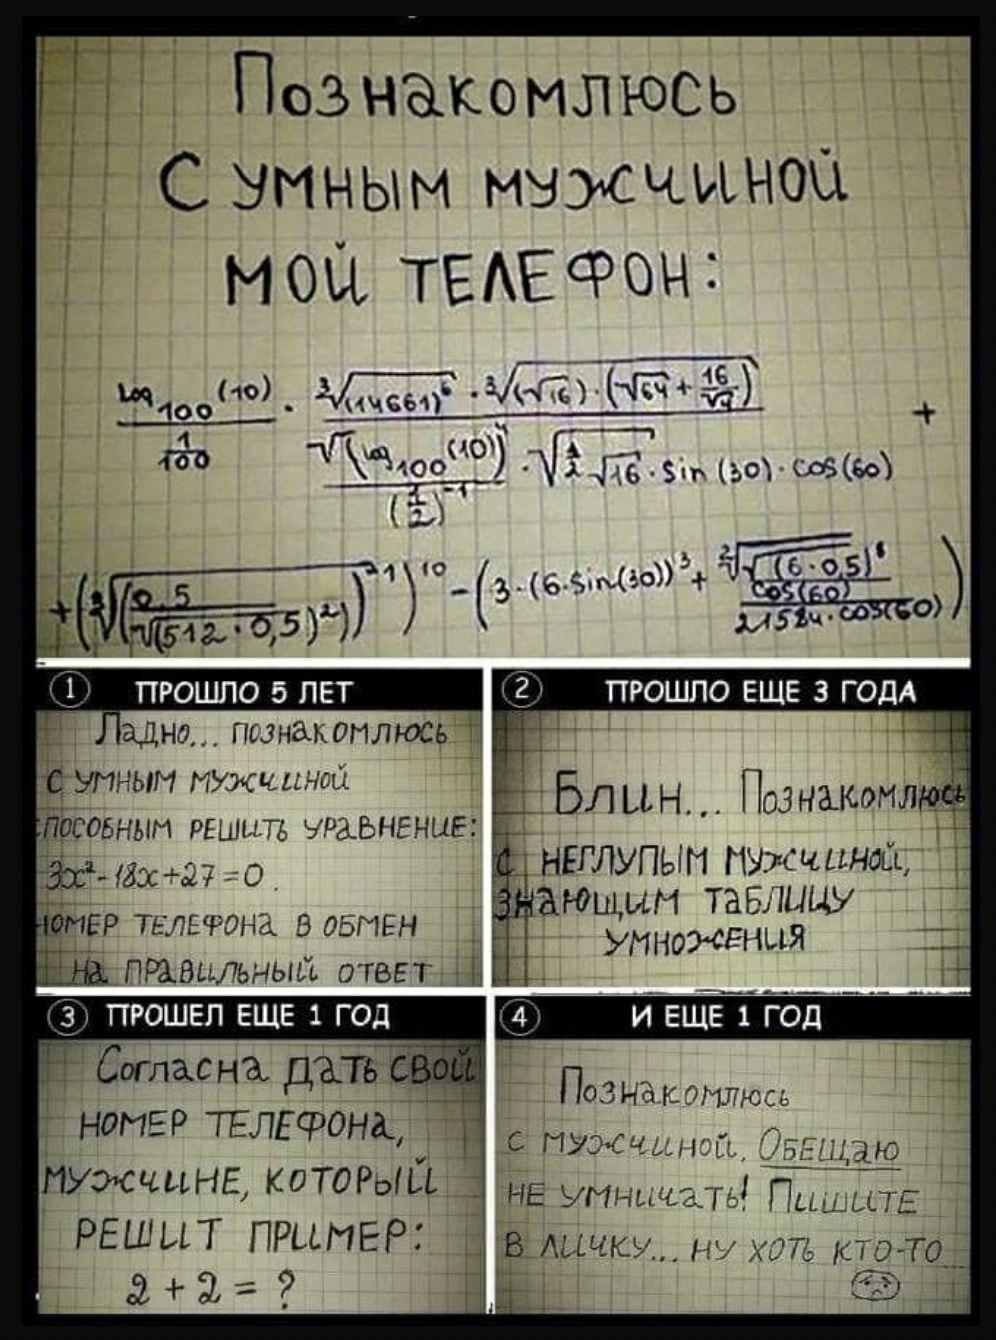 Познакомлюсь
с умным мужчиной
мой телефон:
log₁₀₀(10) / (1/100) · ∛(14661)⁶ · ∛((√16)·(√64 + 16/√4)) +
√(log₁₀₀(10))⁴ / (1/2)⁻¹ · √(1/2 √16 · sin(30) · cos(60)
+ (∛((0.5 / √(512·0,5)²))⁻¹)¹⁰ - (3·(6·sin(30))³ +
① ПРОШЛО 5 ЛЕТ
Ладно... познакомлюсь
с умным мужчиной
способным решить уравнение:
3x²-18x+27=0.
номер телефона в обмен
на правильный ответ
② ПРОШЛО ЕЩЕ 3 ГОДА
Блин... Познакомлюсь
с неглупым мужчиной,
знающим таблицу
умножения
③ ПРОШЕЛ ЕЩЕ 1 ГОД
Согласна дать свой
номер телефона,
мужчине, который
решит пример:
2 + 2 = ?
④ И ЕЩЕ 1 ГОД
Познакомлюсь
с мужчиной. Обещаю
не умничать! Пишите
в личку... ну хоть кто-то